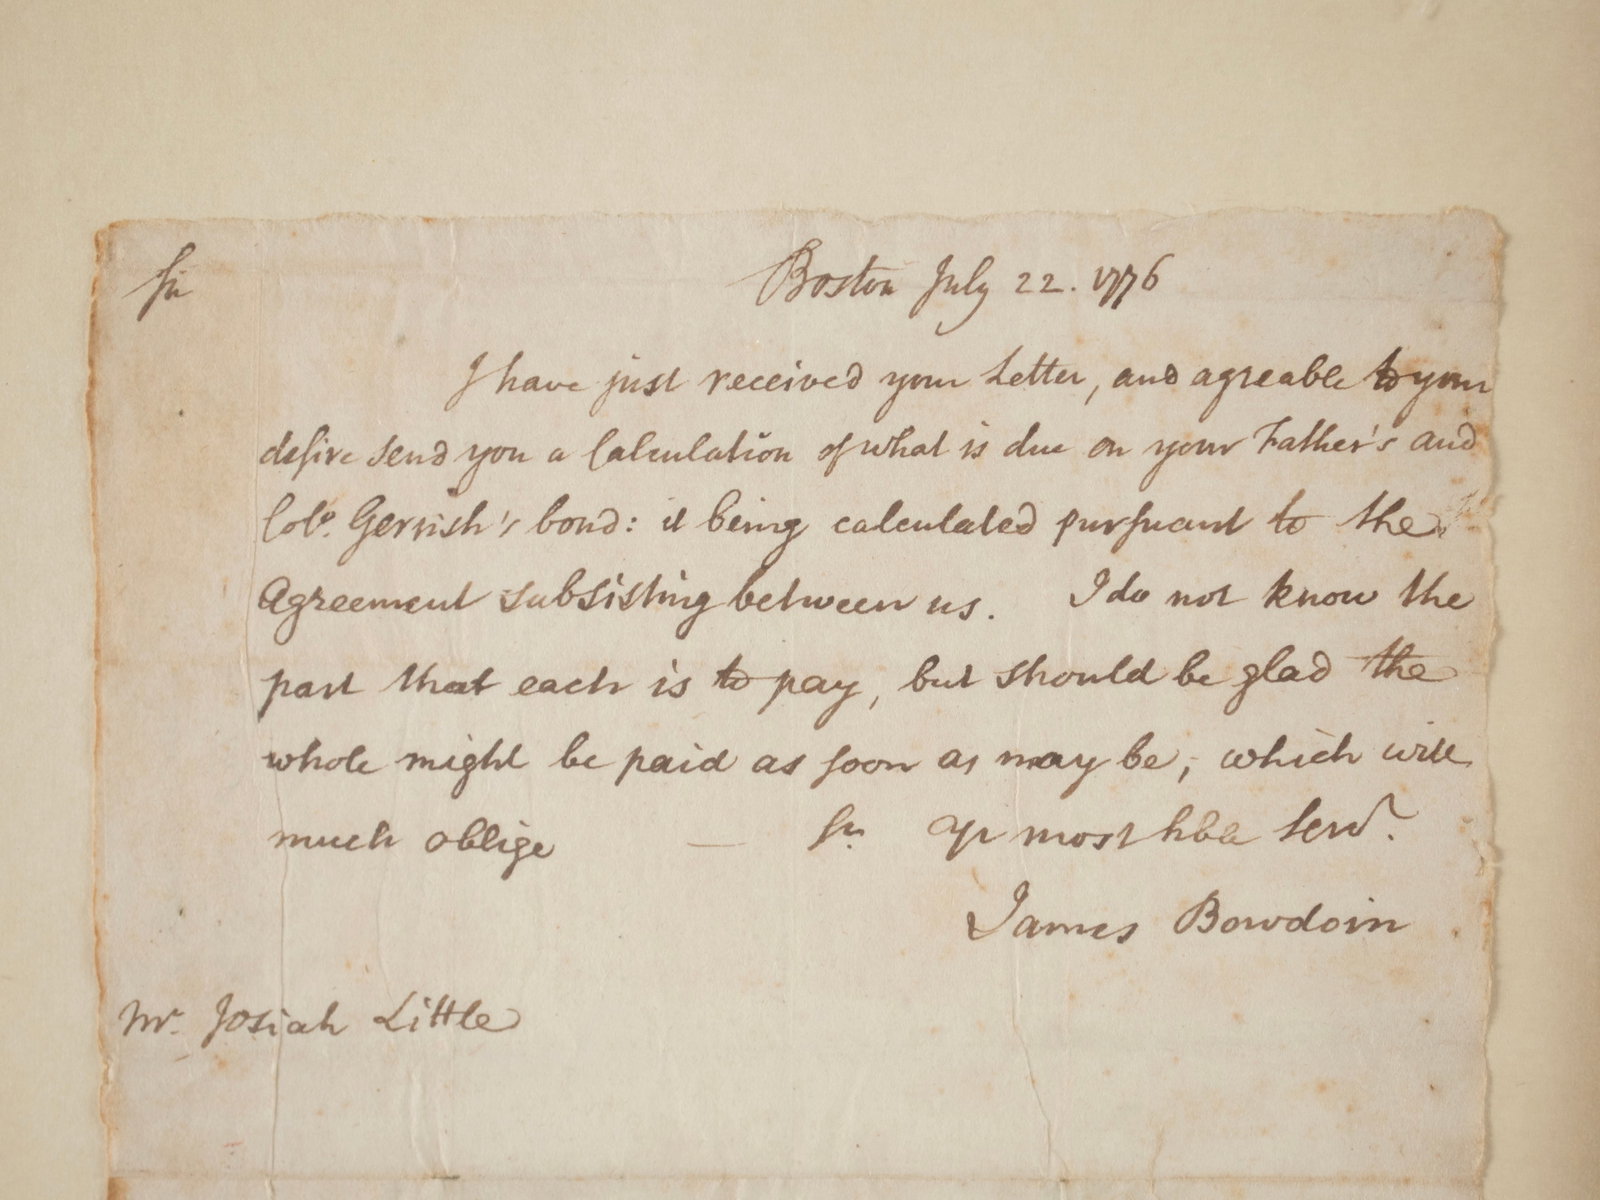 Sir
Boston July 22. 1776
I have just received your Letter, and agreable to your
desire send you a Calculation of what is due on your Father's and
Colo. Gerrish's bond: it being calculated pursuant to the
Agreement subsisting between us. I do not know the
part that each is to pay, but should be glad the
whole might be paid as soon as may be, which will
much oblige — Sr. yr most hble Servt.
James Bowdoin
Mr. Josiah Little